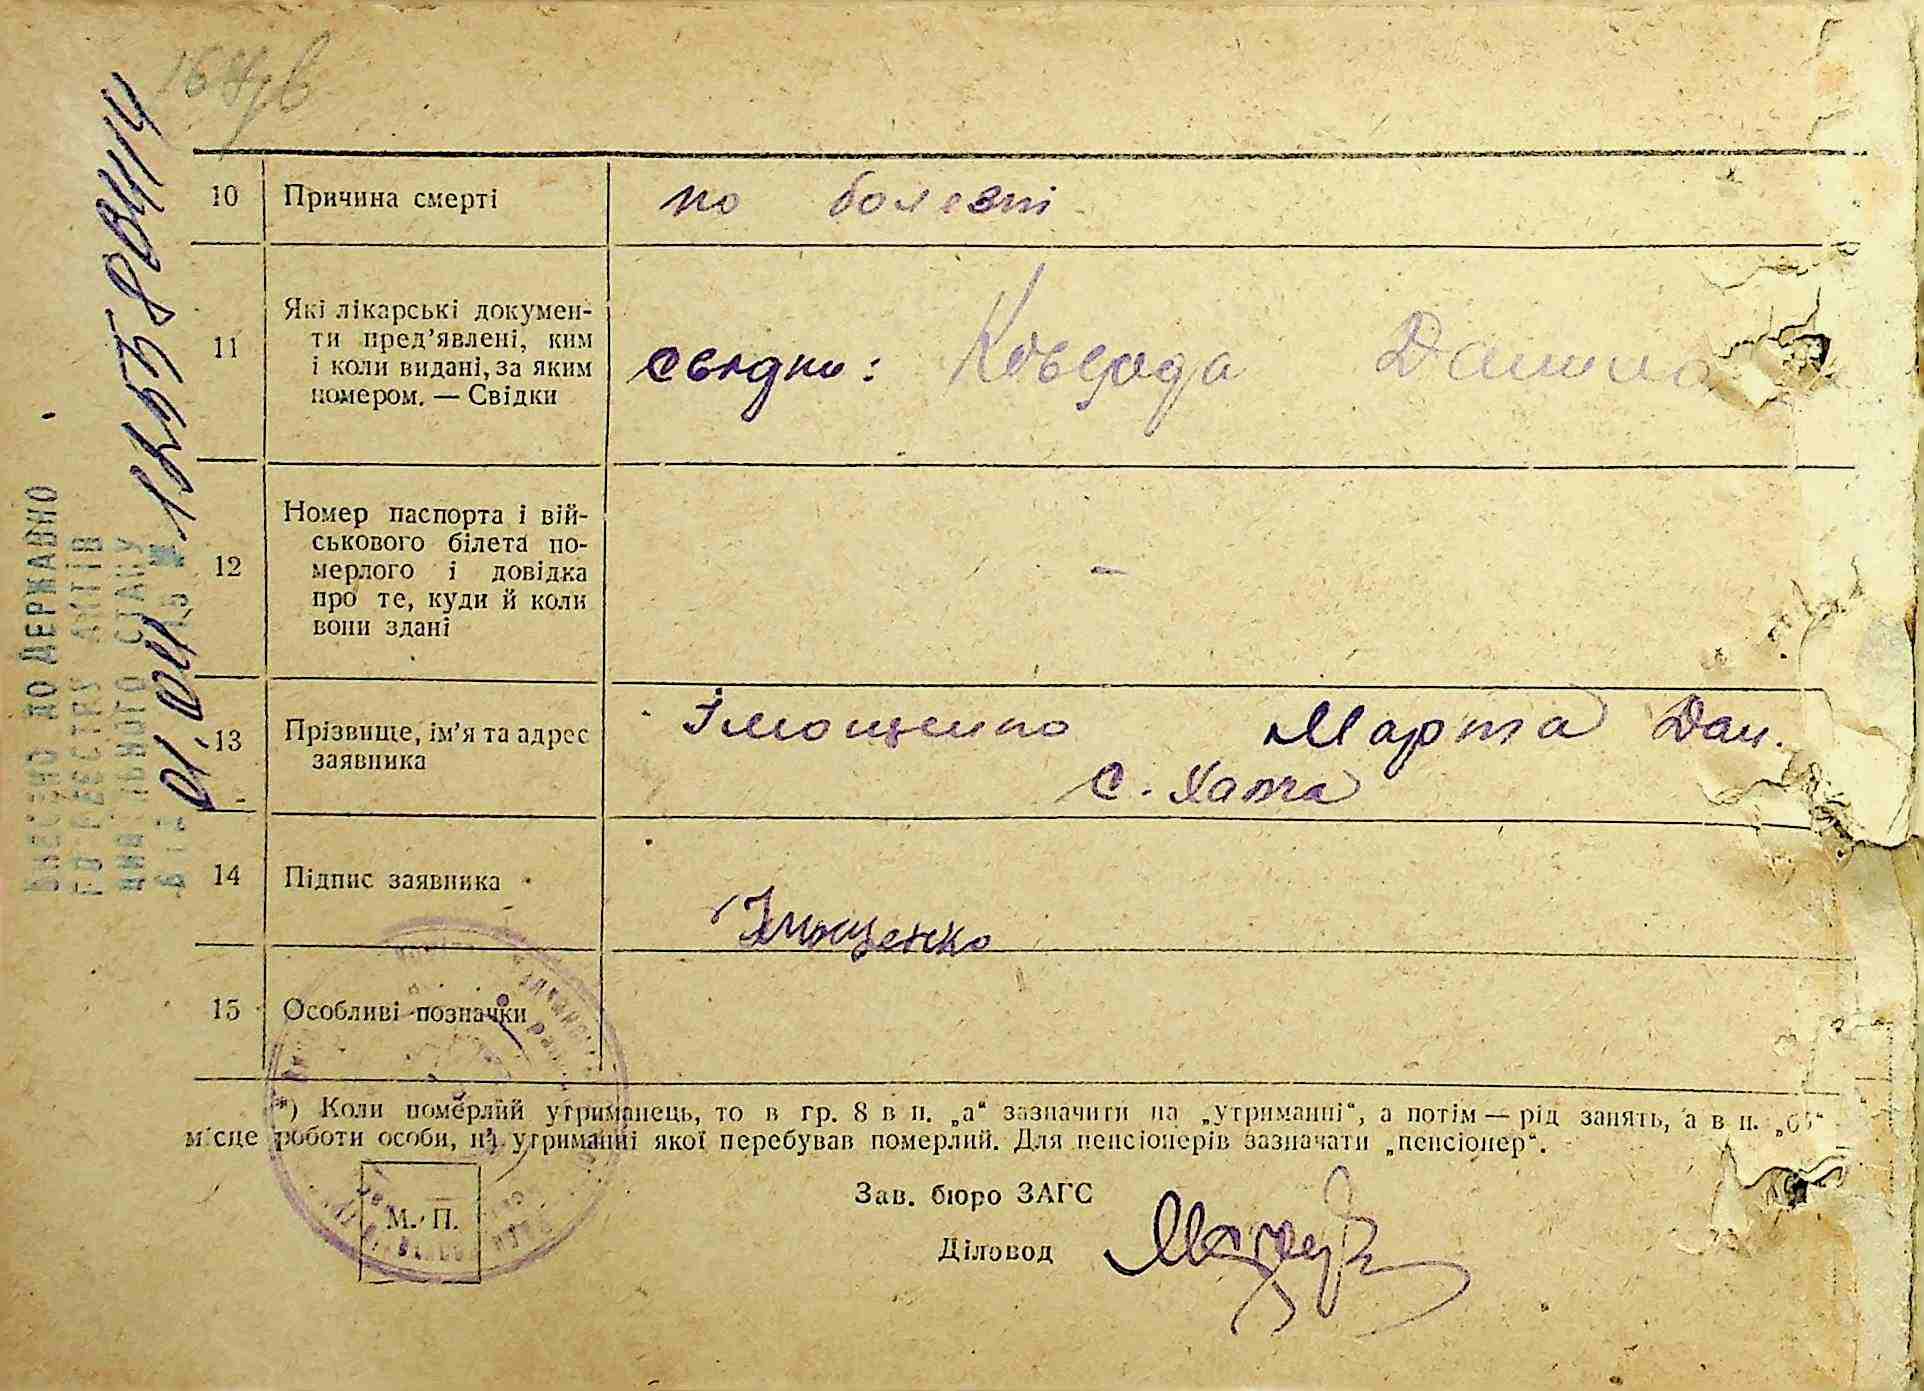 10 Причина смерті по болезні
11 Які лікарські докумен-
ти пред’явлені, ким
і коли видані, за яким
номером. — Свідки
свідки: Коверда Данило
12 Номер паспорта і вій-
ськового білета по-
мерлого і довідка
про те, куди й коли
вони здані
–
13 Прізвище, ім’я та адрес
заявника
Імощенко Марта Дан.
с. Хатка
14 Підпис заявника
Імощенко
15 Особливі позначки
*) Коли померлий утриманець, то в гр. 8 в п. „а“ зазначити на „утриманні“, а потім — рід занять, а в п. „б“
місце роботи особи, на утриманні якої перебував померлий. Для пенсіонерів зазначати „пенсіонер“.
Зав. бюро ЗАГС
М. П.
Діловод
ВНЕСЕНО ДО ДЕРЖАВНО
ГО РЕЄСТРУ АКТІВ
ЦИВІЛЬНОГО СТАНУ